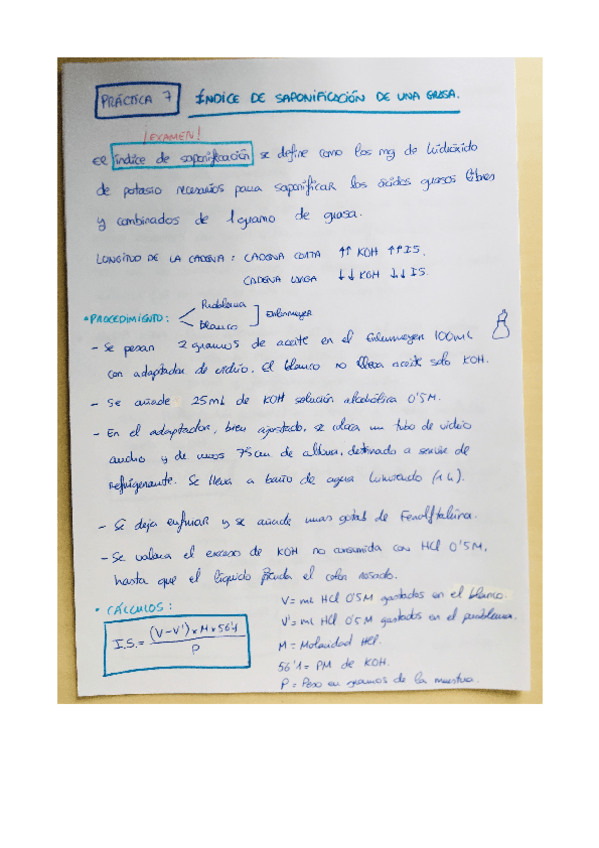 PRÁCTICA 7 ÍNDICE DE SAPONIFICACIÓN DE UNA GRASA.
¡EXAMEN!
El índice de saponificación se define como los mg de hidróxido
de potasio necesarios para saponificar los ácidos grasos libres
y combinados de 1 gramo de grasa.
LONGITUD DE LA CADENA: CADENA CORTA ↑↑ KOH ↑↑ IS.
CADENA LARGA ↓↓ KOH ↓↓ IS
* PROCEDIMIENTO: Problema
Blanco
Erlenmeyer
- Se pesan 2 gramos de aceite en el Erlenmeyer 100mL
con adaptador de vidrio. El blanco no lleva aceite solo KOH.
- Se añade 25mL de KOH solución alcohólica 0'5M.
- En el adaptador, bien ajustado, se coloca un tubo de vidrio
ancho y de unos 75cm de altura, destinado a servir de
refrigerante. Se lleva a baño de agua hirviendo (1h).
- Se deja enfriar y se añade unas gotas de Fenolftaleina.
- Se valora el exceso de KOH no consumida con HCl 0'5M,
hasta que el líquido pierda el color rosado.
* CÁLCULOS:
I.S.= (V-V')×M×56'1
P
V= mL HCl 0'5M gastados en el blanco.
V'= mL HCl 0'5M gastados en el problema.
M= Molaridad HCl.
56'1= PM de KOH.
P= Peso en gramos de la muestra.